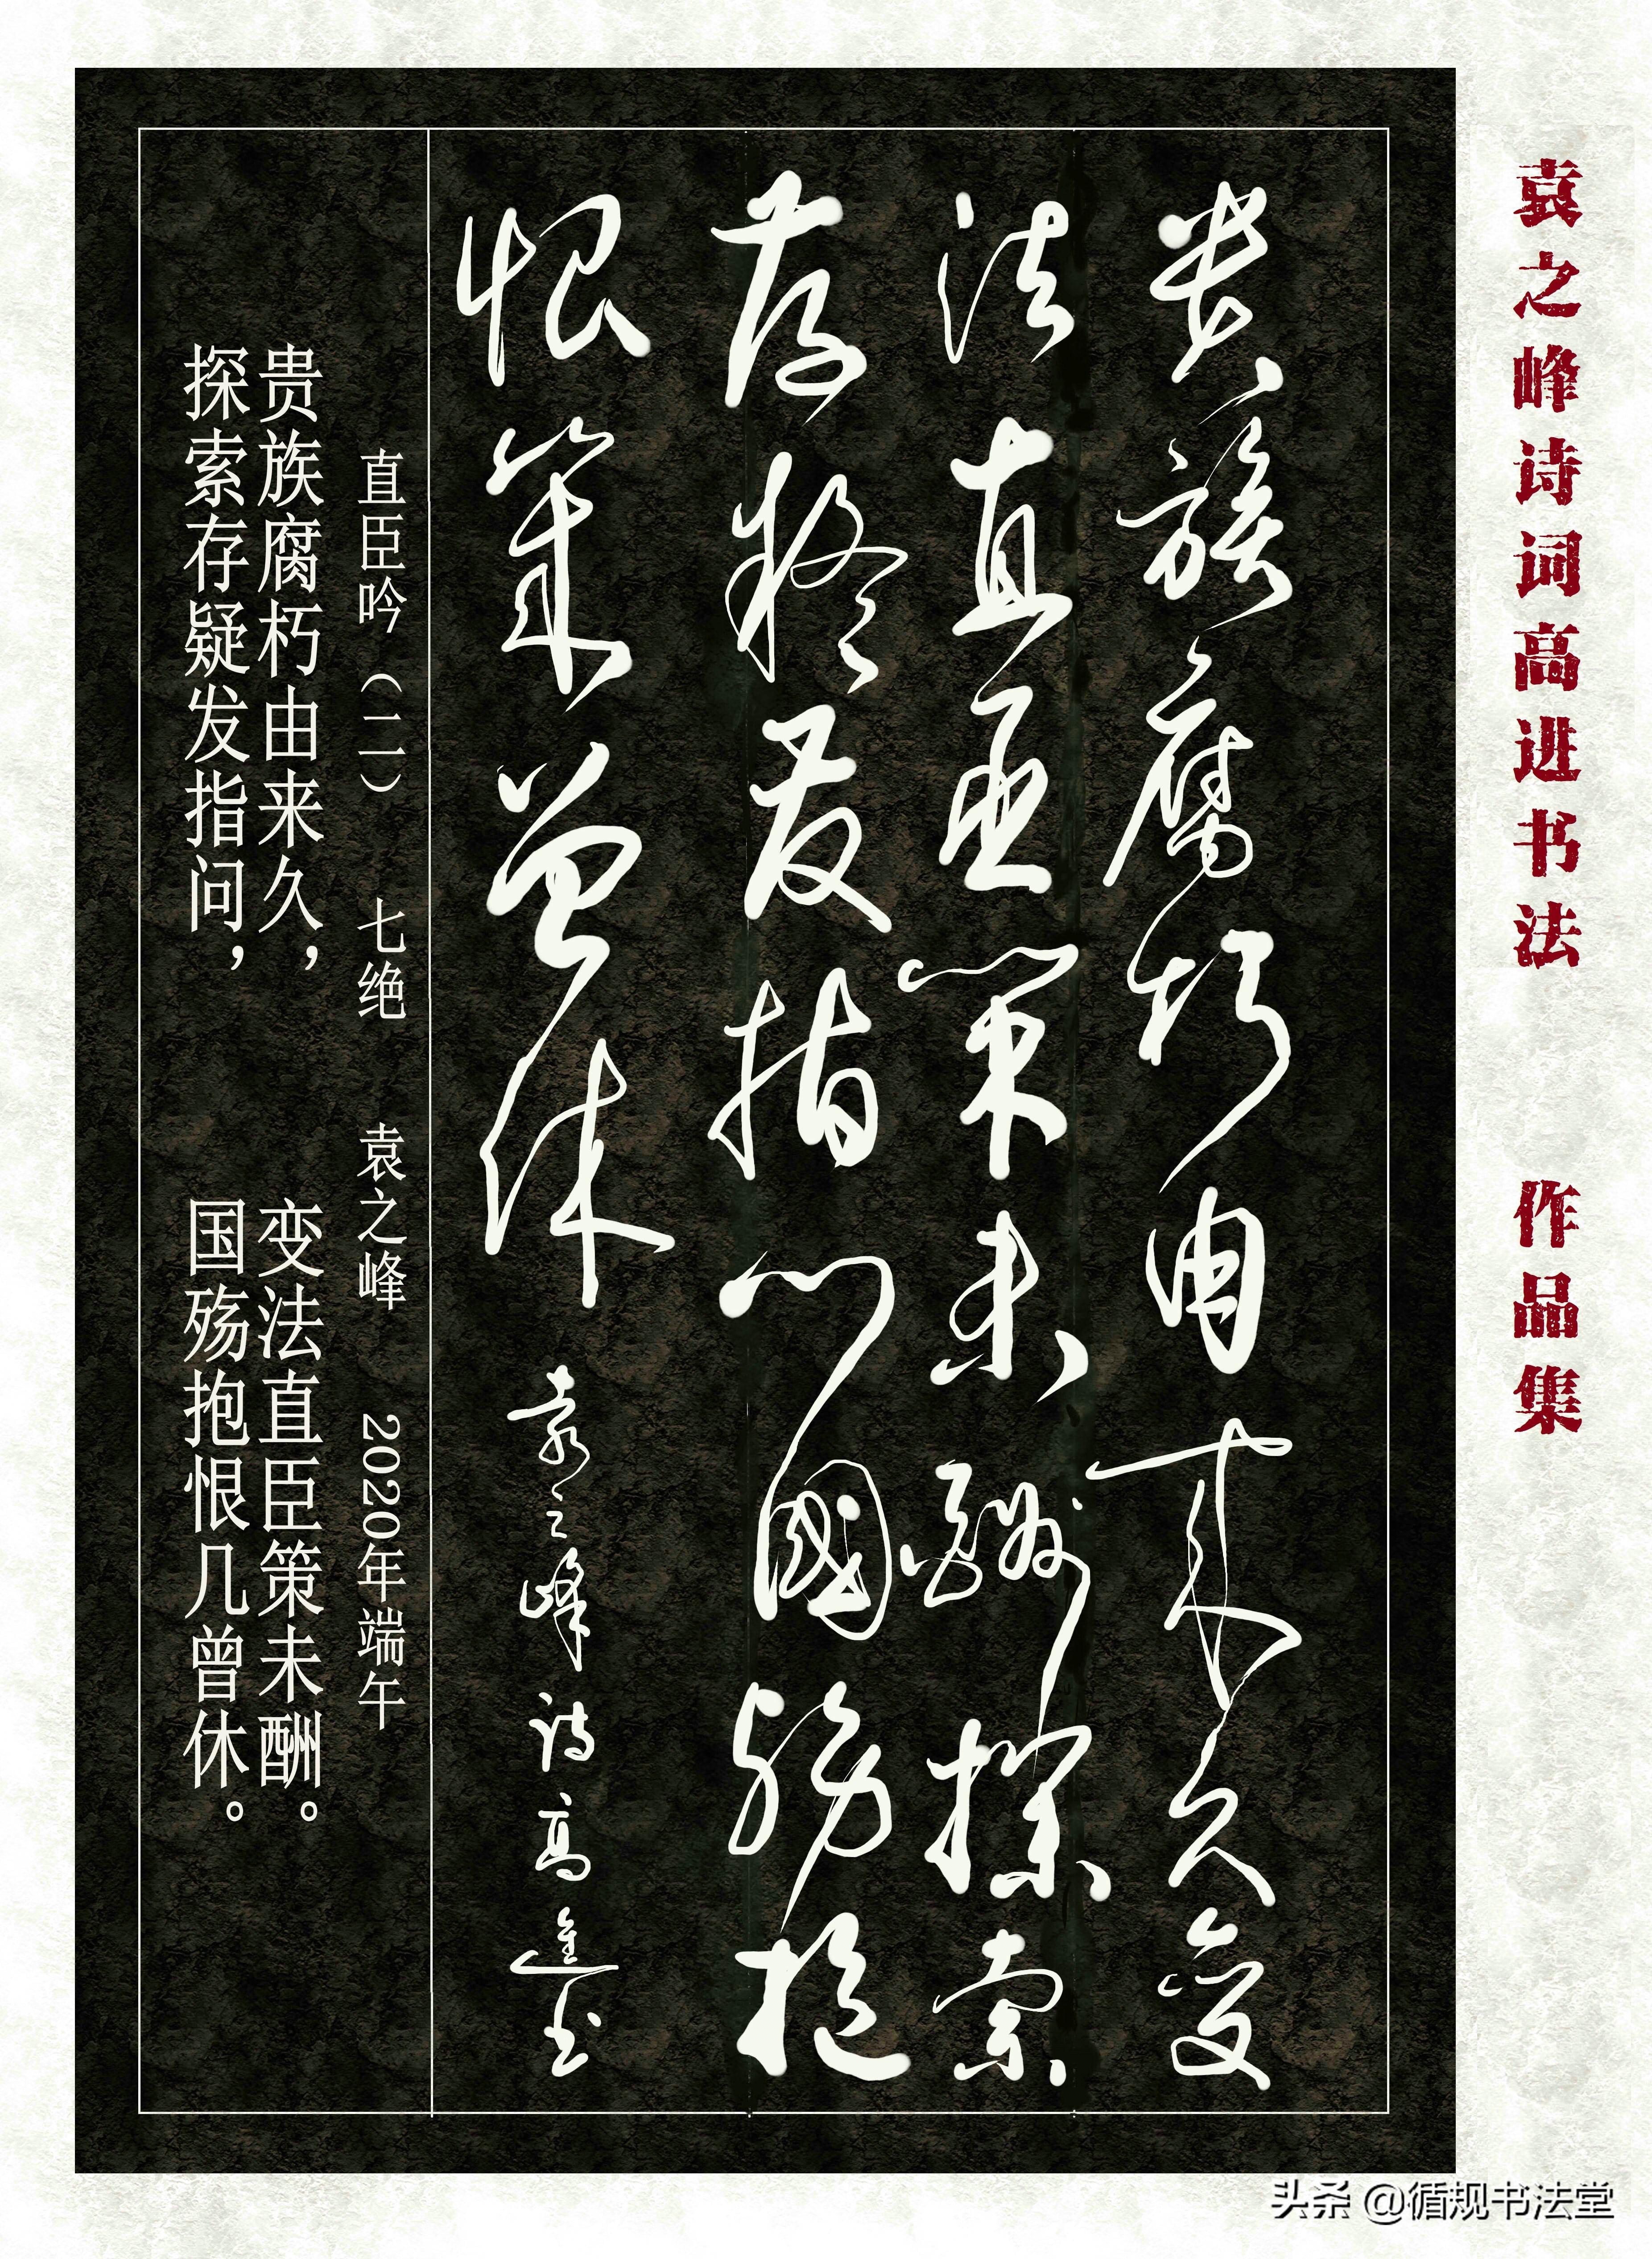 袁之峰诗词高进书法 作品集
貴族腐朽由来久變
法直臣策未酬探索
存疑發指问國殤抱
恨幾曾休 袁之峰诗高進书
直臣吟（二） 七绝 袁之峰 2020年端午
贵族腐朽由来久， 变法直臣策未酬。
探索存疑发指问， 国殇抱恨几曾休。
头条 @循规书法堂